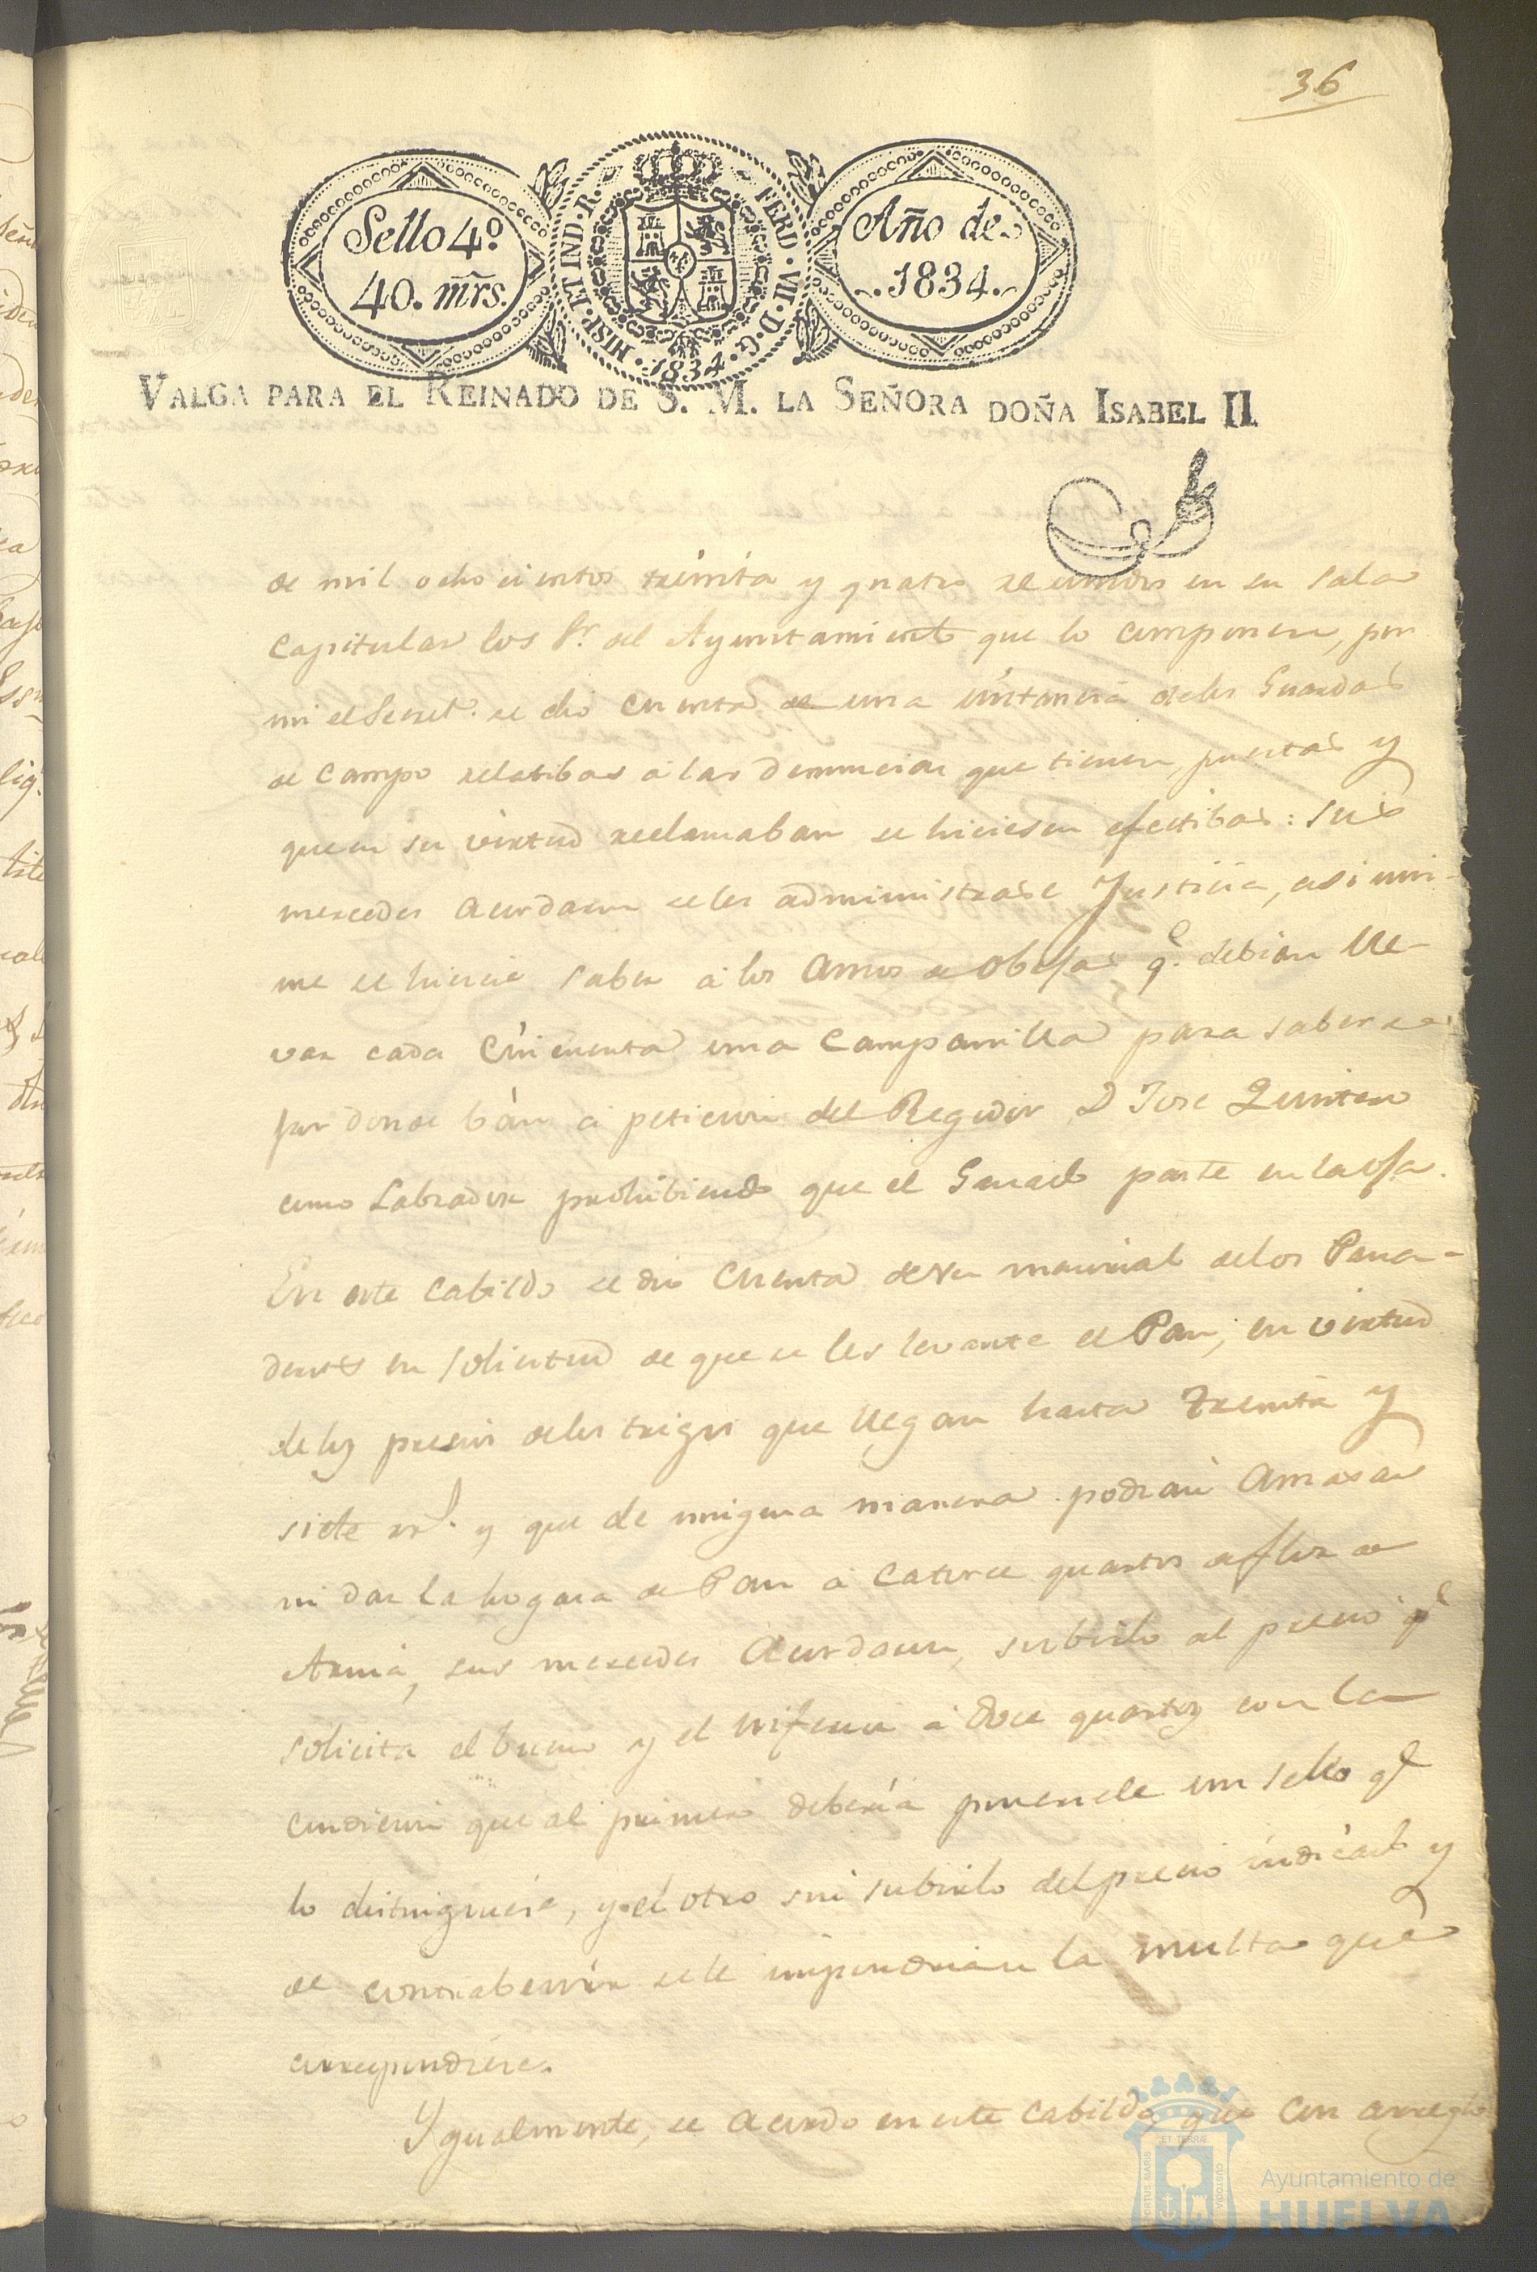 36
Sello 4º
40. mrs.
HISP. ET IND. R. FERD. VII. D. G. 1834.
Año de
1834.
VALGA PARA EL REINADO DE S. M. LA SEÑORA DOÑA ISABEL II
de mil ochocientos treinta y quatro reunidos en su sala
Capitular los Sr. del Ayuntamiento que lo componen, por
mi el Secret. se dio cuenta de una instancia de los Guardas
de Campo relatibas a las denuncias que tienen puestas y
que en su virtud reclamaban se hiciesen efectibas: sus
mercedes acordaron se les administrase Justicia, asi mi-
me se hiciese saber a los Amos de Obejas q.e debian lle-
var cada cincuenta una Campanilla para saberse
por donde bán a peticion del Regidor D Jose Quintero
como Labrador prohibiendo que el Ganado paste en la
En este Cabildo se dio Cuenta de un memorial de los Pana-
deros en solicitud de que se les levante el Pan, en virtud
de los precios de los trigos que llegan hasta treinta y
siete rs. y que de ninguna manera podian Amasar
ni dar la hogasa de Pan a Catorce quartos de flor de
Arina, sus mercedes Acordaron, subirlo al precio q.e
solicita el bueno y el inferior a doce quartos con la
condicion que al primero deberia ponersele un sello q.e
lo distinguiese, y el otro sin subirlo del precio indicado y
de contrabenir se le impondrian la multa que
correspondiese.
Ygualmente, se Acordo en este Cabildo que con arreglo
ET TERRÆ
PORTUS MARIS
CUSTODIA
Ayuntamiento de
HUELVA